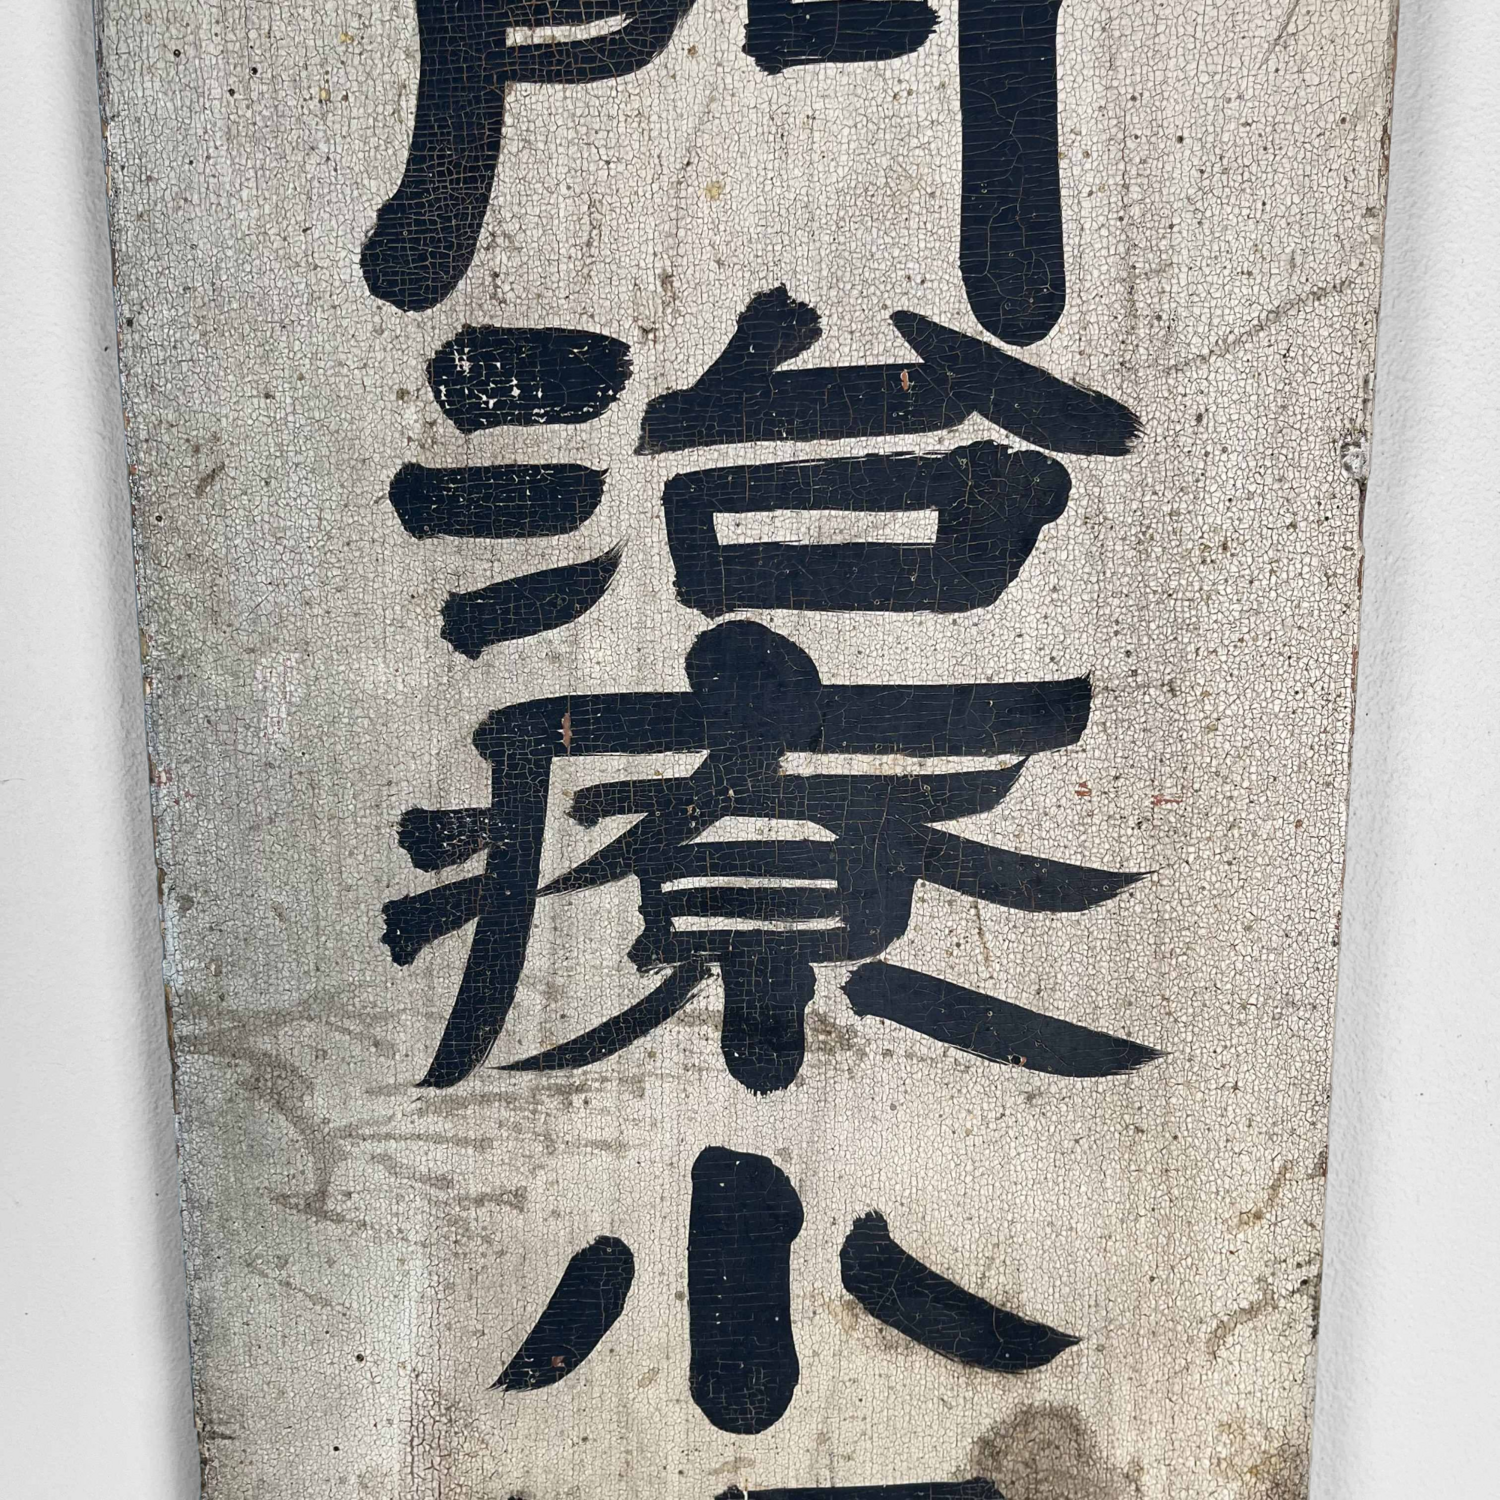 門治療小